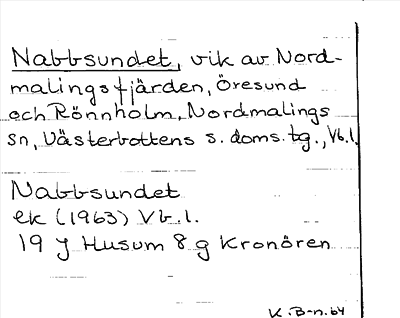 Nabbsundet, vik av Nord-
malingsfjärden, Öresund
och Rönnholm, Nordmalings
sn, Västerbottens s. doms. tg., Vb.l.
Nabbsundet
ek (1963) Vb.l.
19 J Husum 8 g Kronören
K.B-n.64